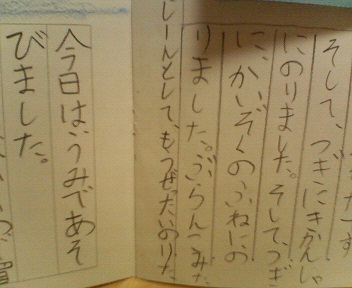 そして、つぎにきかんしゃ
にのりました。そして、つぎ
に、かいぞくのふねにの
りました。ぶらんこみた
じーんとして、もうぜったいのりた
今日はうみであそ
びました。